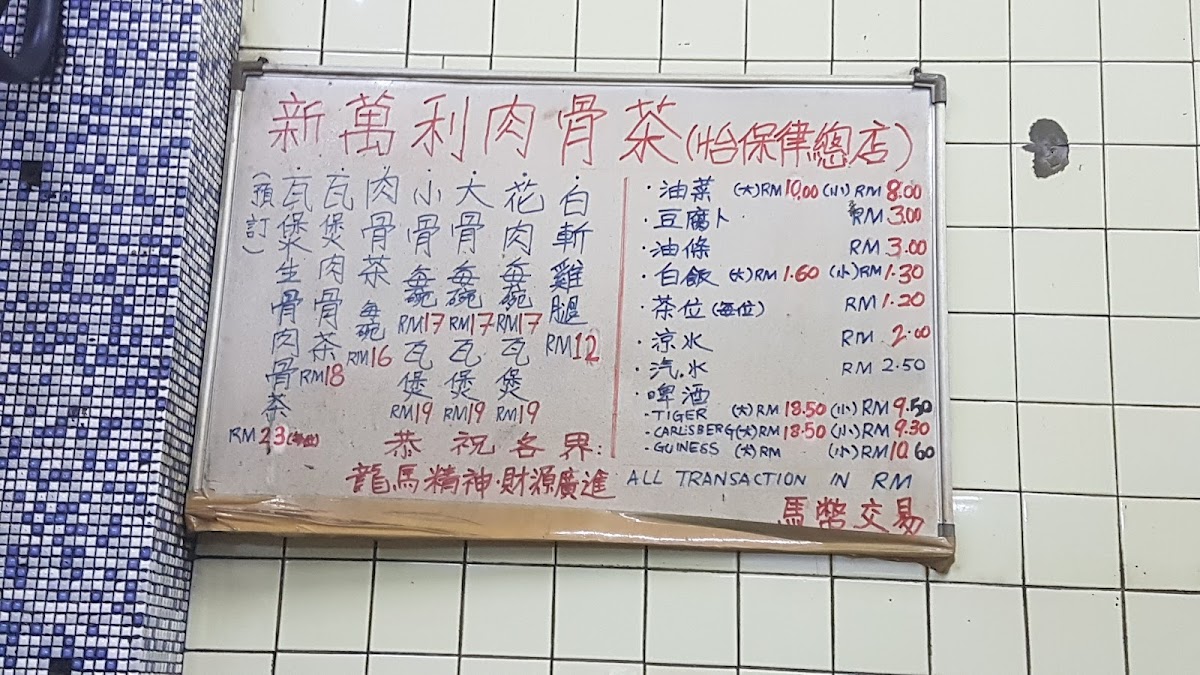 新萬利肉骨茶(怡保律總店)
·白斬雞腿 RM12
·花肉每碗 RM17 瓦煲 RM19
·大骨每碗 RM17 瓦煲 RM19
·小骨每碗 RM17 瓦煲 RM19
·肉骨茶每碗 RM16
·瓦煲肉骨茶 RM18
·瓦煲生骨肉骨茶 RM23
(預訂)
恭祝各界:
龍馬精神·財源廣進
·油菜 (大)RM10.00 (小)RM8.00
·豆腐卜 RM3.00
·油條 RM3.00
·白飯 (大)RM1.60 (小)RM1.30
·茶位(每位) RM1.20
·涼水 RM2.00
·汽水 RM2.50
·啤酒
-TIGER (大)RM18.50 (小)RM9.50
-CARLSBERG(大)RM18.50 (小)RM9.30
-GUINESS (大)RM (小)RM10.60
ALL TRANSACTION IN RM
馬幣交易